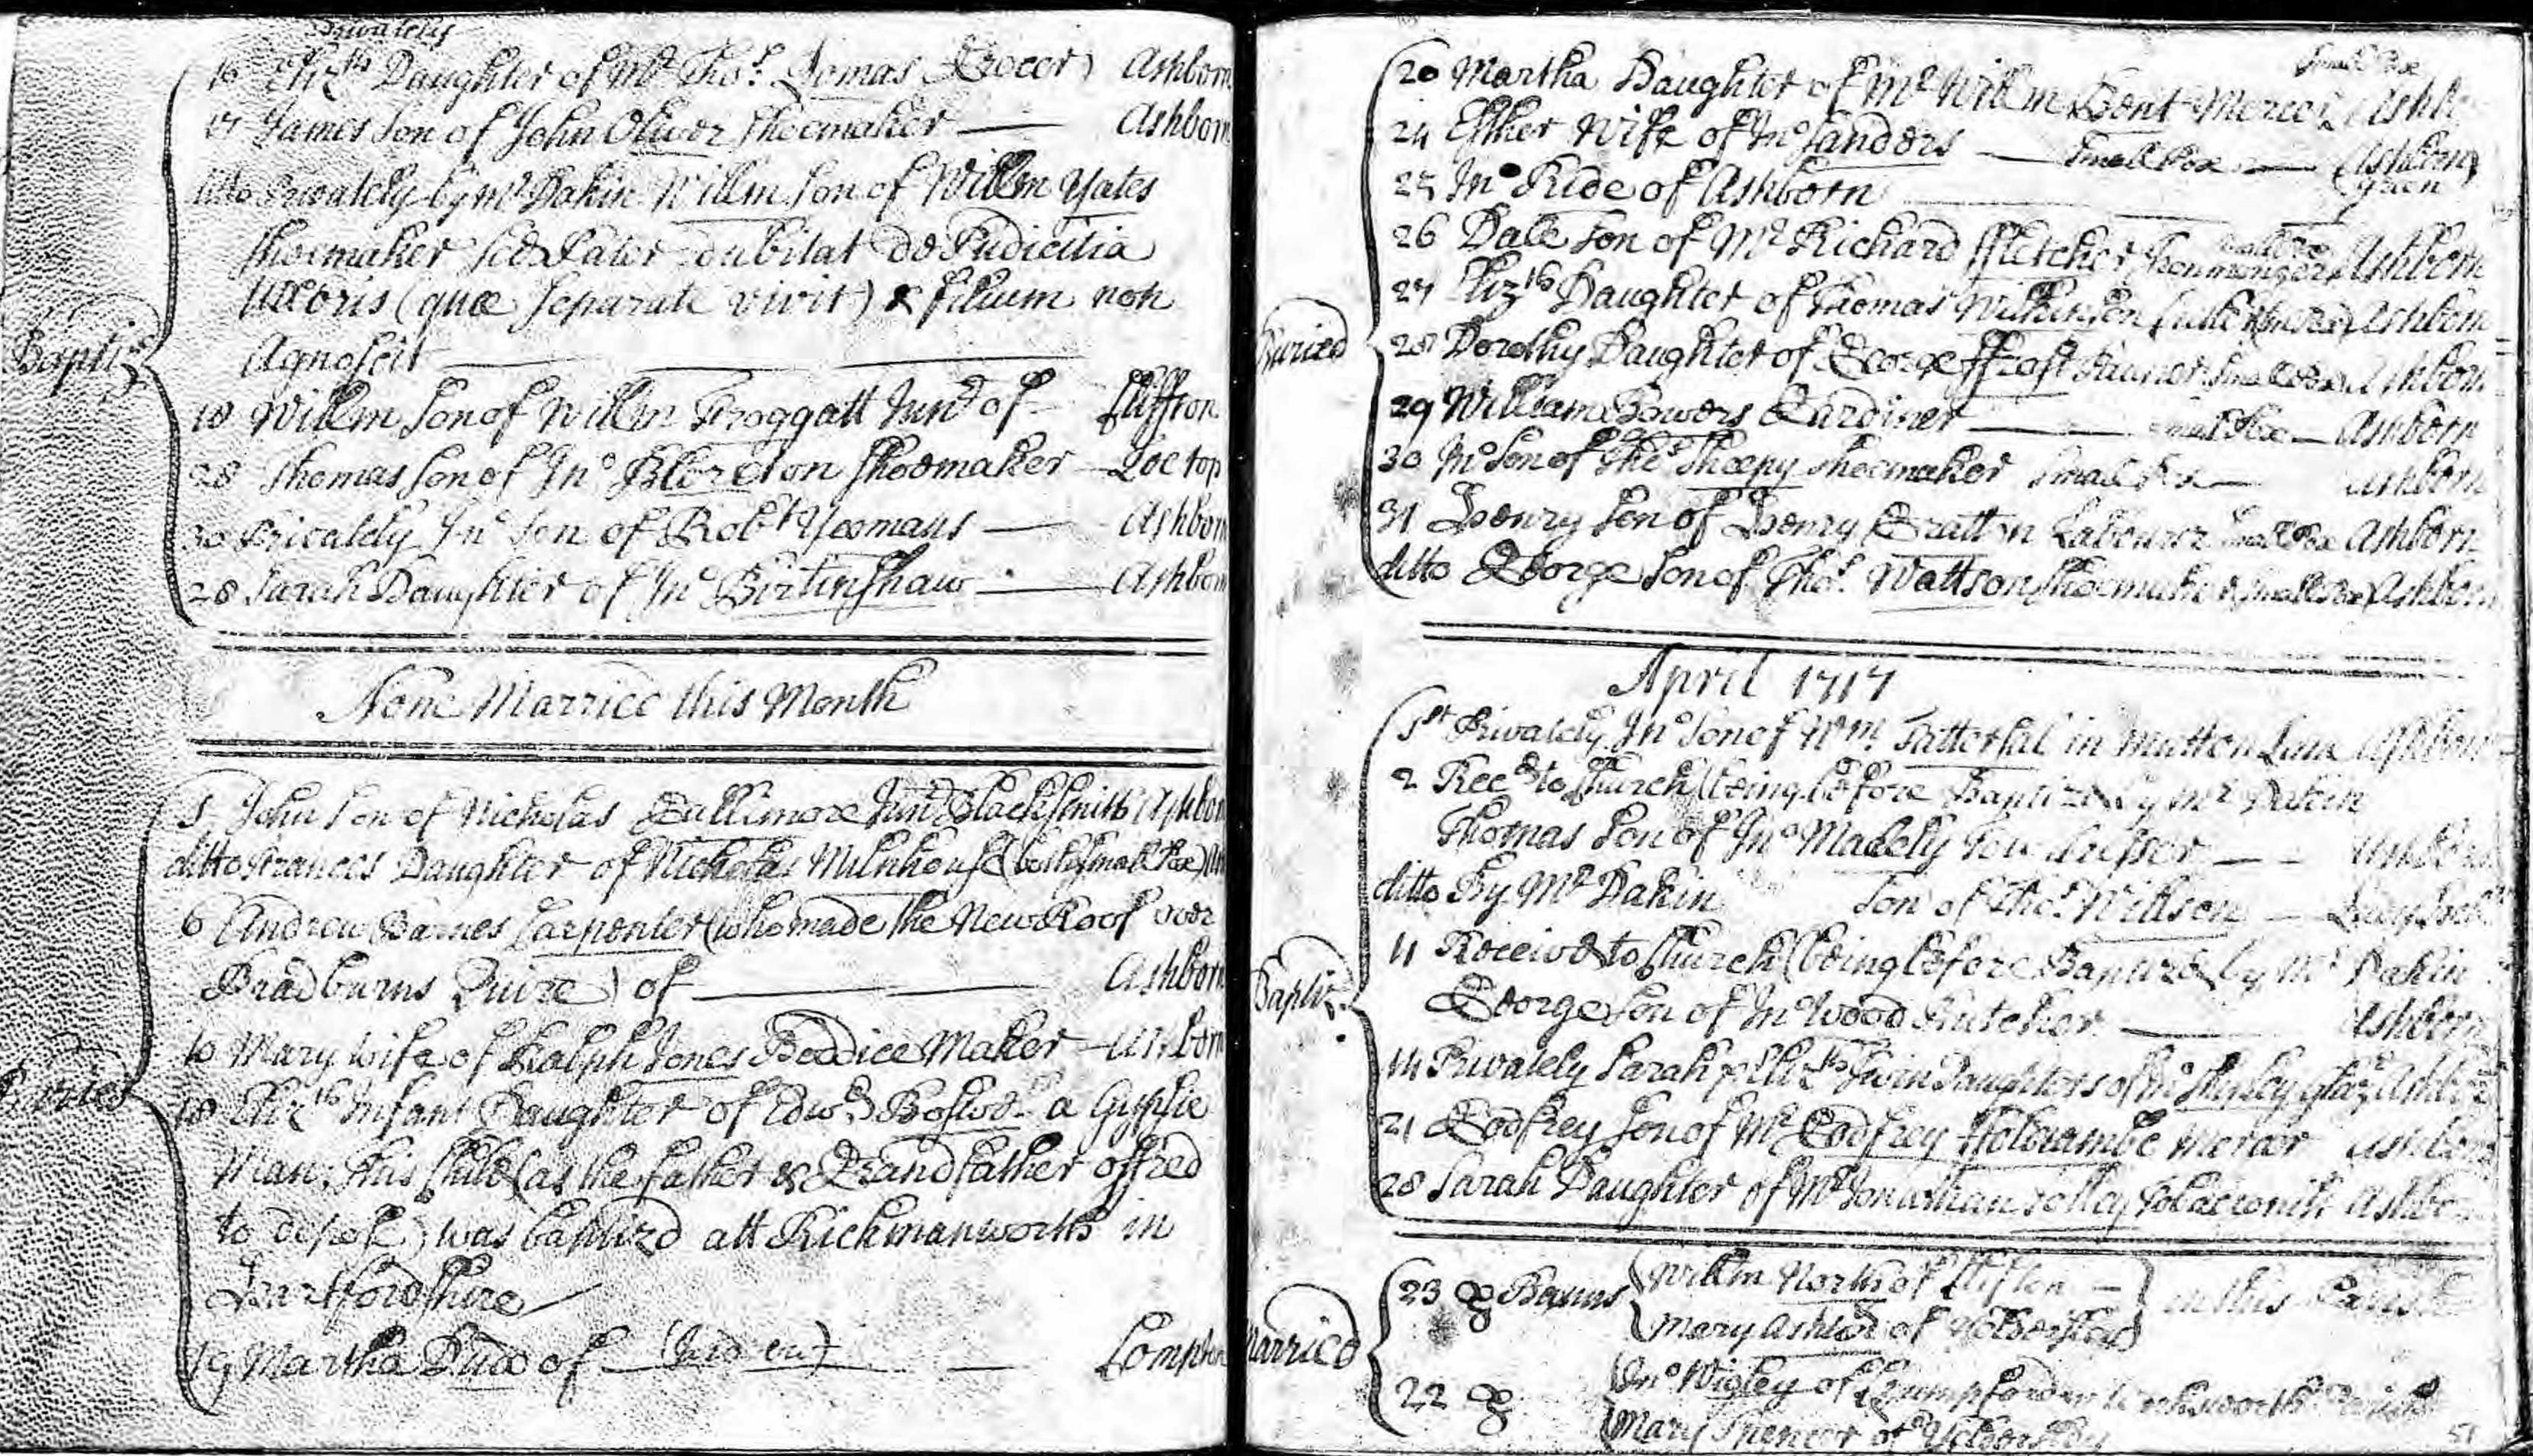 privately
16 Eliz:th Daughter of Mr Tho.s Jomas Grocer) Ashborn
17 James Son of John Oliver Shoemaker — Ashborn
ditto privately by Mr Dakin Willm Son of Willm Yates
Shoemaker sed Pater dubitat de Pudicitia
Uxoris (quæ separate vivit) & filium non
Agnoscit
Baptiz
18 Willm Son of Willm Froggatt Junr of Cliffton
28 Thomas Son of Jno Bloreton Shoemaker — Loe top
30 Privately Jno Son of Robt Yeomans — Ashborn
28 Sarah Daughter of Jno Birtinshaw — Ashborn
None Married this Month
5 John Son of Nicholas Dallimore Junr Blacksmith Ashborn
ditto Frances Daughter of Nicholas Milnhouse (both small Pox)
6 Andrew Barnes Carpenter (who made the New Roof over
Bradburns Quire) of — Ashborn
10 Mary wife of Ralph Jones Boddice Maker — Ashborn
Buried
18 Eliz:th Infant Daughter of Edwd Boswel a Gypsie
Man. This Child (as the father & Grandfather offred
to depose) was baptizd att Rickmanworth in
Hartfordshire
19 Martha Dud of — Compton
20 Martha Daughter of Mr Willm Bent Mercer Small Pox Ashb
24 Esther Wife of Jno Sanders — Small Pox — (Ashborn green
25 Jno Ride of Ashborn
26 Dale Son of Mr Richard ffletcher Ironmonger Small Pox Ashborn
27 Eliz:th Daughter of Thomas Wilkinson Ashborn
Buried
28 Dorothy Daughter of George ffrost Tanner Small Pox Ashborn
29 William Bowers Gardiner — Small Pox — Ashborn
30 Jno Son of Tho.s Sheepy Shoemaker Small Pox — Ashborn
31 Henry Son of Henry Bratton Labourer Small Pox Ashborn
ditto George Son of Tho.s Wattson Shoemaker (Small Pox) Ashborn
April 1717
1st Privately Jno Son of Wm Tattersal in Mutton Lane Ashborn
2 Recd to Church (being before Baptized by Mr Dakin
Thomas Son of Jno Madely Tow dresser — Ashborn
ditto By Mr Dakin Son of Tho.s Willson —
11 Received to Church (being before Baptizd by Mr Dakin
Baptiz
George Son of Jno Wood Butcher — Ashborn
14 Privately Sarah & Eliz:th Twin Daughters of Ashb
21 Godfrey Son of Mr Godfrey Holcombe Mercer Ashborn
28 Sarah Daughter of Mr Jonathan Ashbo
23 Banns Willm North of Clifton — in this Parish
Mary Ashton of Yeldersley
Married
22 Jno Wigley of Parish
Mary Spencer of Yeldersley
51